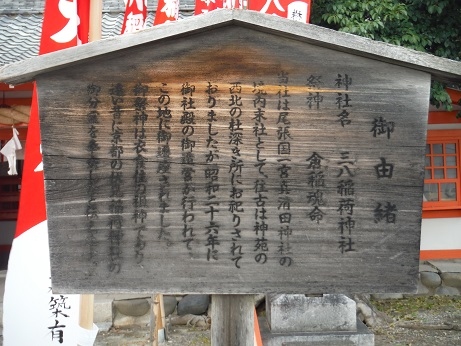 御由緒
神社名 三八稲荷神社
祭神 倉稲魂命
当社は尾張国一宮真清田神社の
境内末社として、往古は神苑の
西北の杜深き所にお祀りされて
おりましたが昭和二十六年に
御社殿の御造営が行われて、
この地に御遷座されました。
御祭神は衣食住の祖神であり、
遠い昔に京都の伏見稲荷神社の
築有